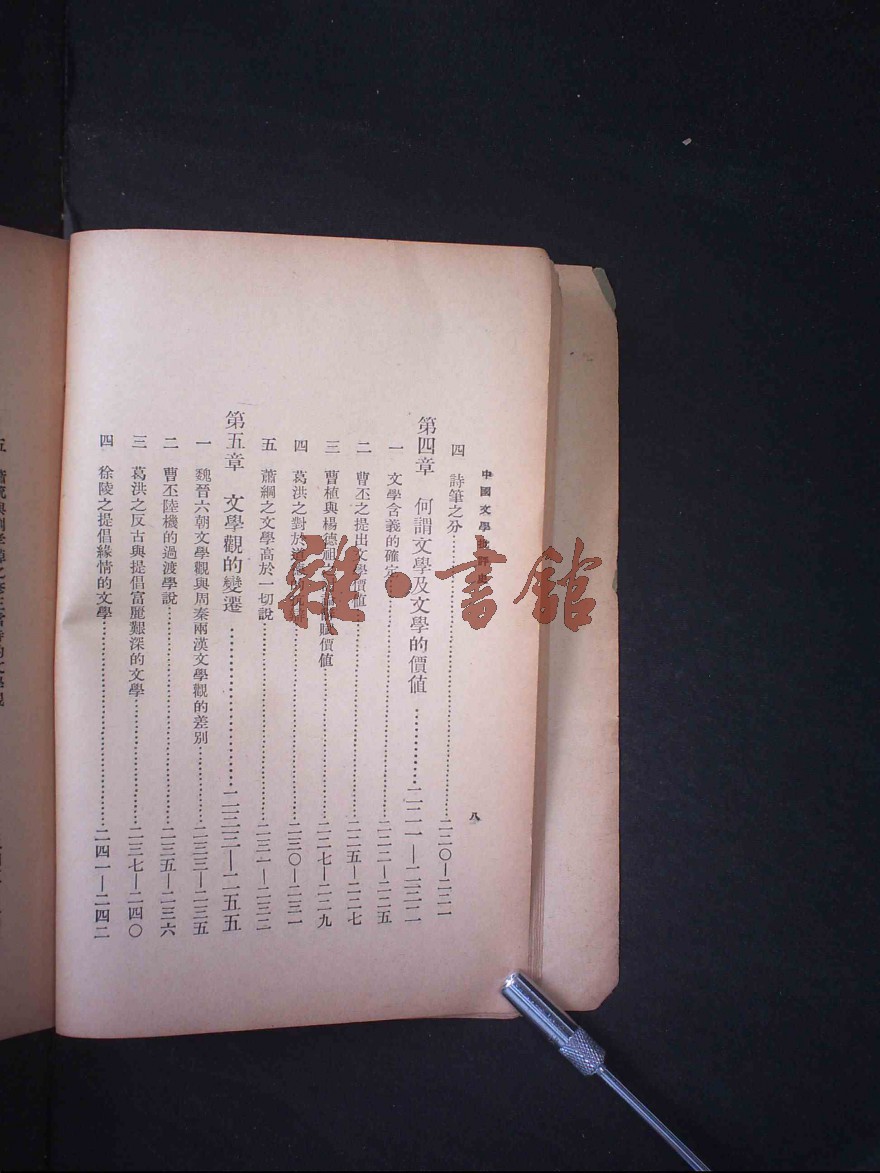 中國文學批評史
八
四 詩筆之分……二二〇—二二一
第四章 何謂文學及文學的價值……二二一—二三二
一 文學含義的確定……二二二—二二五
二 曹丕之提出文學價值……二二五—二二七
三 曹植與楊德祖 賦價值……二二七—二二九
四 葛洪之對於……二三〇—二三一
五 蕭綱之文學高於一切說……二三一—二三二
第五章 文學觀的變遷……二三二—二五五
一 魏晉六朝文學觀與周秦兩漢文學觀的差別……二三三—二三五
二 曹丕陸機的過渡學說……二三五—二三六
三 葛洪之反古與提倡富麗艱深的文學……二三七—二四〇
四 徐陵之提倡緣情的文學……二四一—二四二
雜·書館